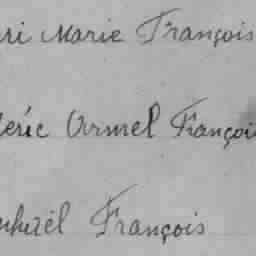 ri Marie François
éric Armel François
François